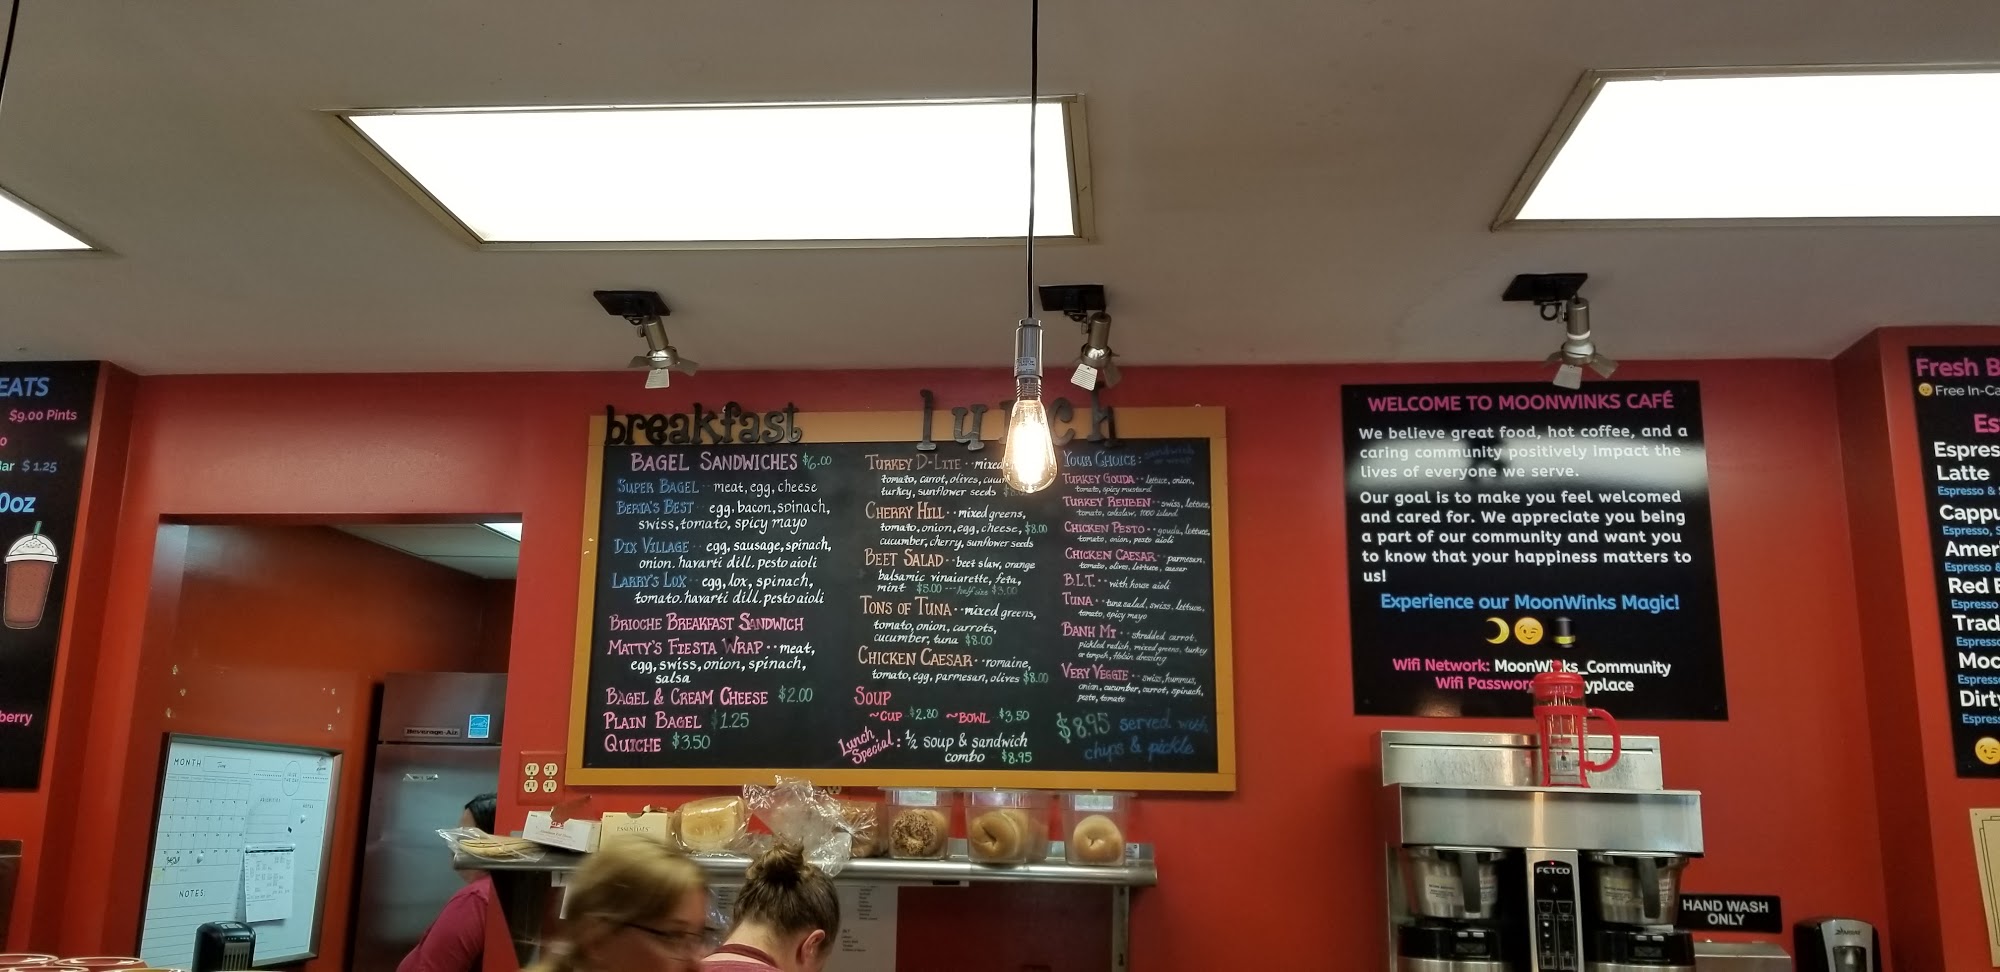 EATS
$9.00 Pints
Bar $1.25
0oz
berry
MONTH
NOTES:
Beverage-Air
breakfast
BAGEL SANDWICHES $6.00
SUPER BAGEL·· meat, egg, cheese
BERTA'S BEST·· egg, bacon, spinach,
swiss, tomato, spicy mayo
DIX VILLAGE·· egg, sausage, spinach,
onion, havarti dill, pesto aioli
LARRY'S LOX·· egg, lox, spinach,
tomato, havarti dill, pesto aioli
BRIOCHE BREAKFAST SANDWICH
MATTY'S FIESTA WRAP·· meat,
egg, swiss, onion, spinach,
salsa
BAGEL & CREAM CHEESE $2.00
PLAIN BAGEL $1.25
QUICHE $3.50
lunch
TURKEY D-LITE·· mixed
tomato, carrot, olives,
turkey, sunflower seeds
CHERRY HILL·· mixed greens,
tomato, onion, egg, cheese, $8.00
cucumber, cherry, sunflower seeds
BEET SALAD·· beet slaw, orange
balsamic vinaiarette, feta,
mint $5.00 ··· half size $3.00
TONS OF TUNA·· mixed greens,
tomato, onion, carrots,
cucumber, tuna $8.00
CHICKEN CAESAR·· romaine,
tomato, egg, parmesan, olives $8.00
SOUP
~CUP $2.80 ~BOWL $3.50
Lunch Special: ½ soup & sandwich
combo $8.95
YOUR CHOICE: sandwich
or wrap
TURKEY GOUDA·· lettuce, onion,
tomato, spicy mustard
TURKEY REUBEN·· swiss, lettuce,
tomato, coleslaw, 1000 island
CHICKEN PESTO·· gouda, lettuce,
tomato, onion, pesto aioli
CHICKEN CAESAR·· parmesan,
tomato, olives, lettuce, caesar
B.L.T.·· with house aioli
TUNA·· tuna salad, swiss, lettuce,
tomato, spicy mayo
BANH MI·· shredded carrot,
pickled radish, mixed greens, turkey
or tempeh, dressing
VERY VEGGIE·· swiss, hummus,
onion, cucumber, carrot, spinach,
pesto, tomato
$8.95 served with
chips & pickle
WELCOME TO MOONWINKS CAFÉ
We believe great food, hot coffee, and a
caring community positively impact the
lives of everyone we serve.
Our goal is to make you feel welcomed
and cared for. We appreciate you being
a part of our community and want you
to know that your happiness matters to
us!
Experience our MoonWinks Magic!
Wifi Network: MoonWinks_Community
Wifi Password yplace
FETCO
HAND WASH
ONLY
Fresh B
Free In-Ca
Es
Espres
Latte
Espresso &
Cappu
Espresso, S
Amer
Espresso &
Red E
Espresso
Trad
Espresso
Moc
Espress
Dirty
Espress